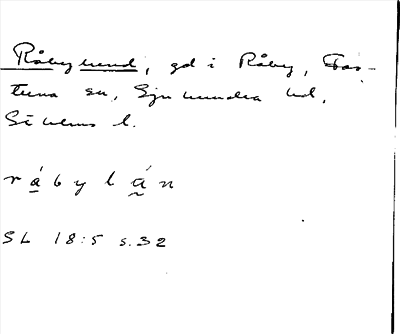 Råbylund, gd i Råby, Fas-
tuna sn, Sjuhundra hd,
Sthlms l.
råbylán
SL 18:5 s.32